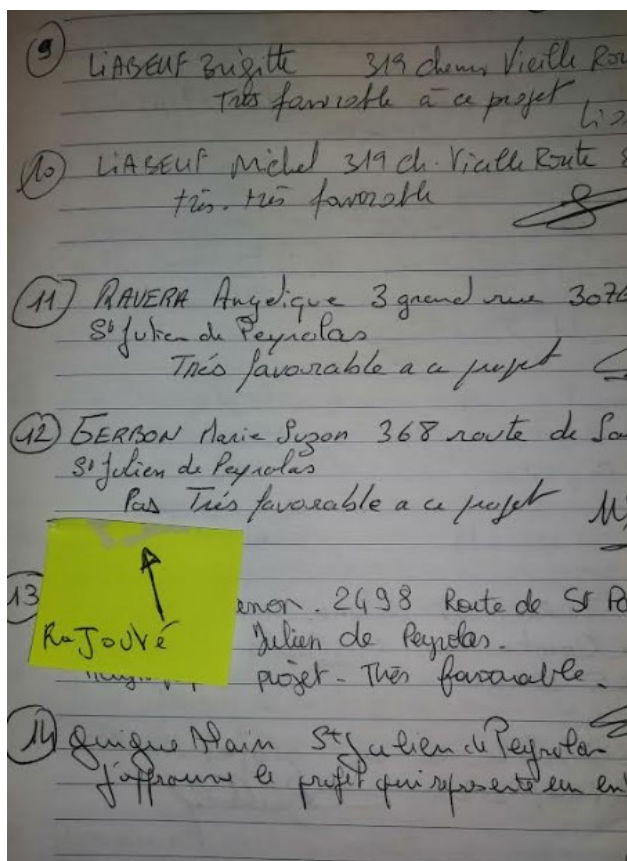 9 LiABEUF Brigitte 319 chemin Vieille Rou
Très favorable à ce projet
10 LiABEUF Michel 319 ch. Vieille Route
très. très favorable
11 RAVERA Angelique 3 grand rue 3076
St Julien de Peyrolas
Trés favourable a ce projet
12 GERBON Marie Suzon 368 route de Sa
St Julien de Peyrolas
Pas Trés favorable a ce projet
13 enon. 2498 Route de St Pa
RaJouvé Julien de Peyrolas.
projet - Très favorable.
14 Quique Alain St Julien de Peyrolas
J'approuve le projet qui représente un en